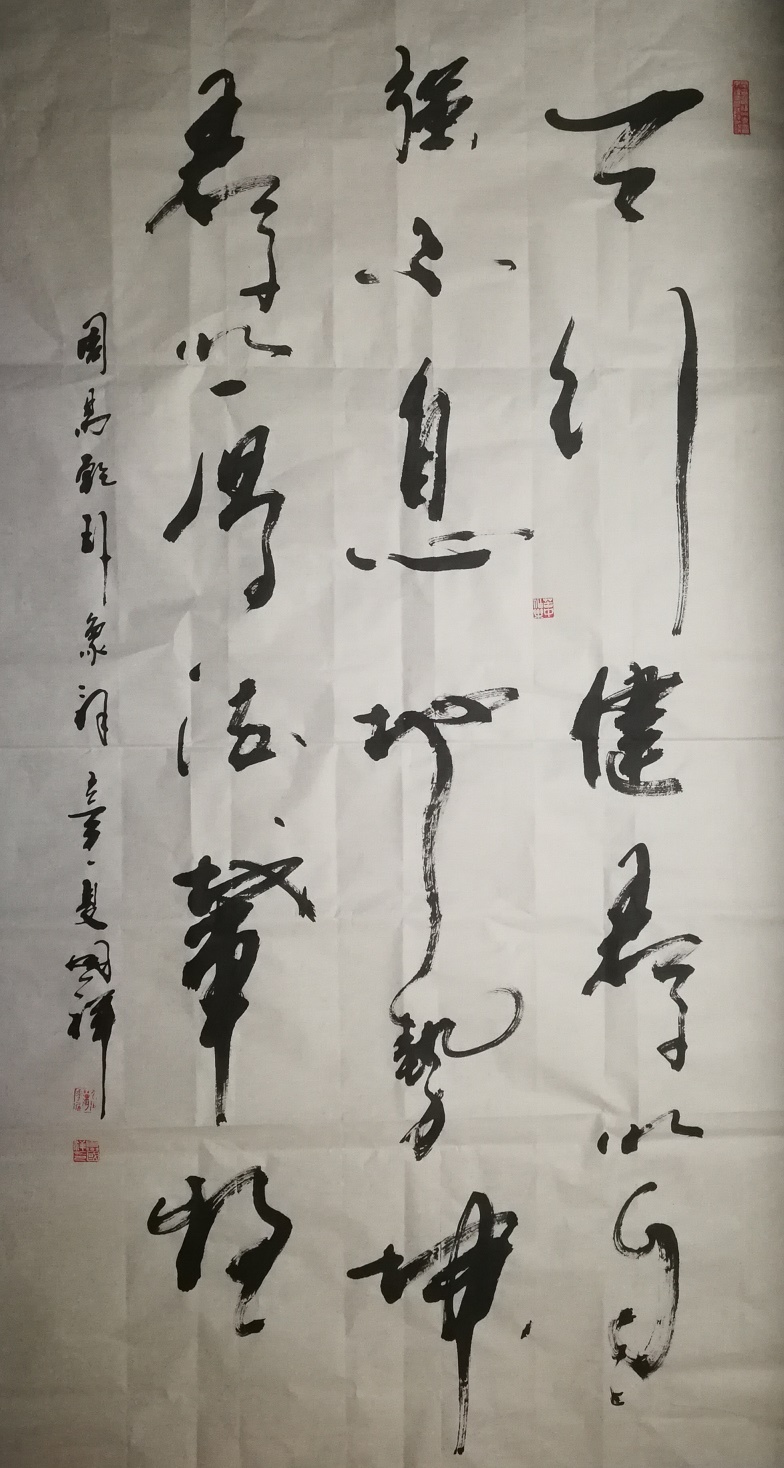 天行健君子以自
強不息地勢坤
君子以厚德載物
周易乾坤象夏國祥